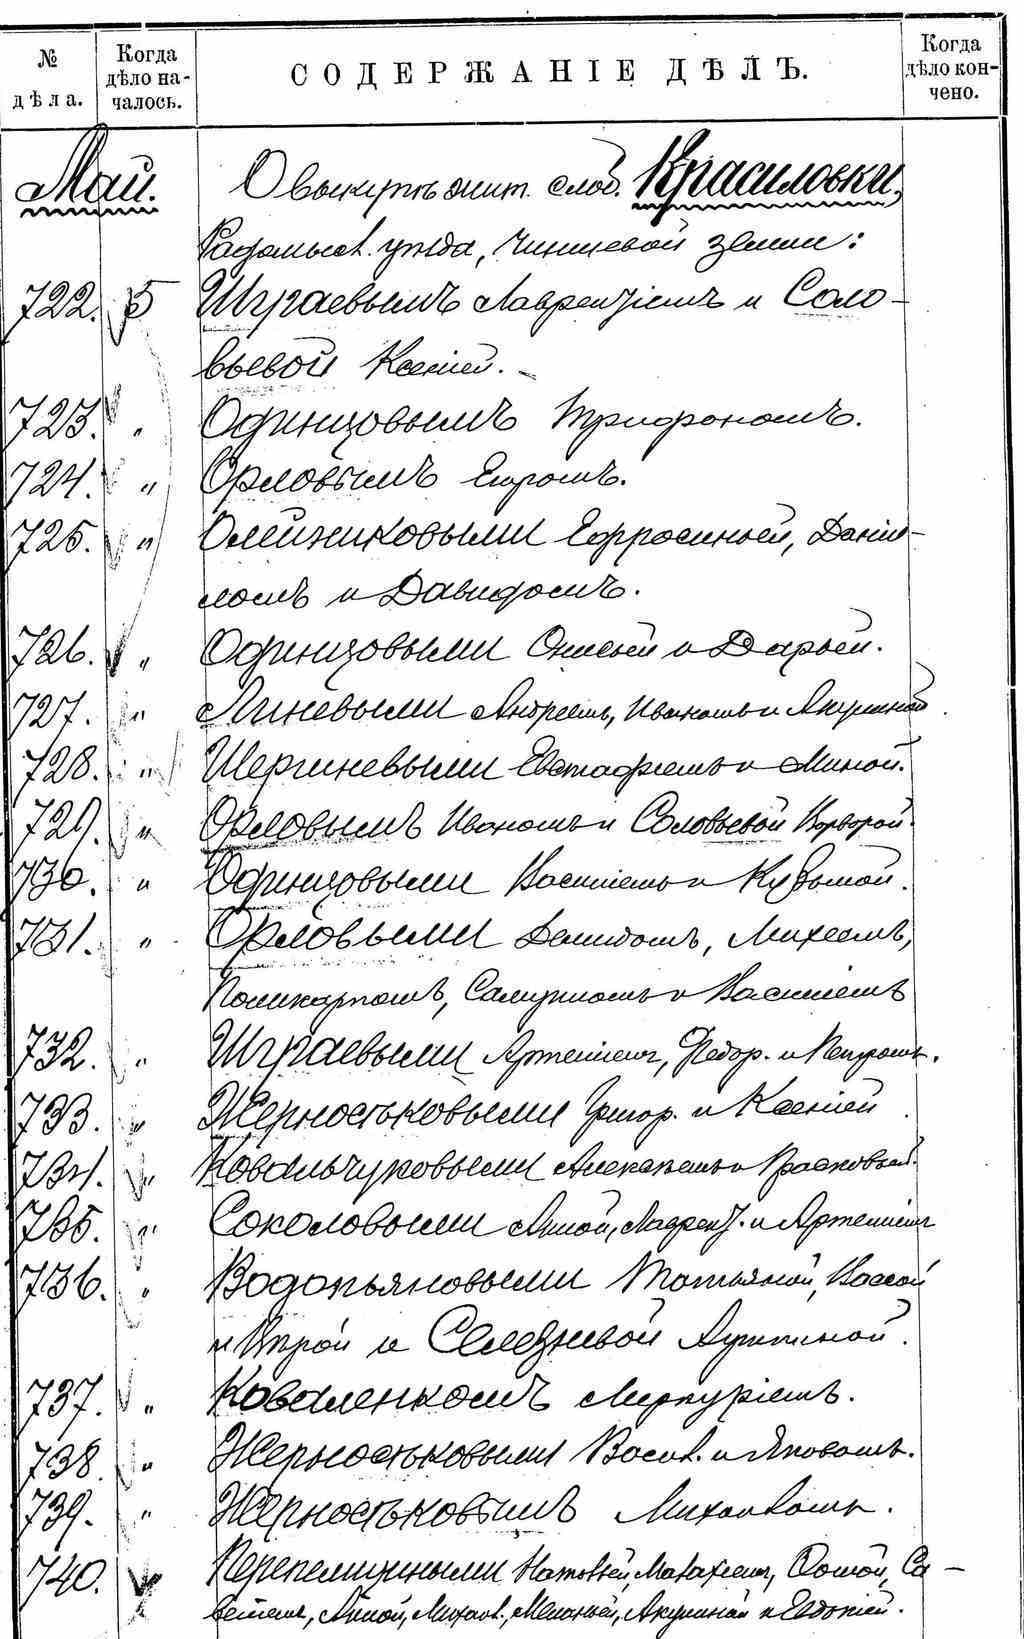 № дѣла.
Когда дѣло началось.
СОДЕРЖАНІЕ ДѢЛЪ.
Когда дѣло кончено.
Май. О выкупѣ жит. слоб. Красиловки,
Радомысл. уѣзда, чиншевой земли:
722. 5 Шграевымъ Лаврентіемъ и Соло-
вьевой Ксеніей.
723. " Одинцовымъ Трифономъ.
724. " Орловымъ Егоромъ.
725. " Олейниковыми Ефросиньей, Дании-
ломъ и Давидомъ.
726. " Одинцовыми Онисьей и Дарьей.
727. " Линевыми Андреемъ, Иваномъ и Акулиной
728. " Шергиневыми Евстафіемъ и Миной.
729. " Орловымъ Иваномъ и Соловьевой Варварой.
730. " Одинцовыми Василіемъ и Кузьмой.
731. " Орловыми Демидомъ, Михеемъ,
Поликарпомъ, Самуиломъ и Василіемъ
732. " Шграевыми Артеміемъ, Федор. и Петромъ.
733. " Жерностьковыми Григор. и Ксеніей
734. " Ковальчуковыми Алексѣемъ и Прасковьей.
735. " Соколовыми Анной, Лаврент. и Артеміемъ
736. " Водопьяновыми Татьяной, Вассой
и Кирой и Селезневой
737. " Коваленкомъ Меркуріемъ.
738. " Жерностьковыми Васил. и Яковомъ.
739. " Жерностьковымъ Михаиломъ.
740. " Перепелицыными Матвѣй, Малахіемъ, Са-
веліемъ, Анной, Михаил., Меланьей, Акулиной и Евдокіей.